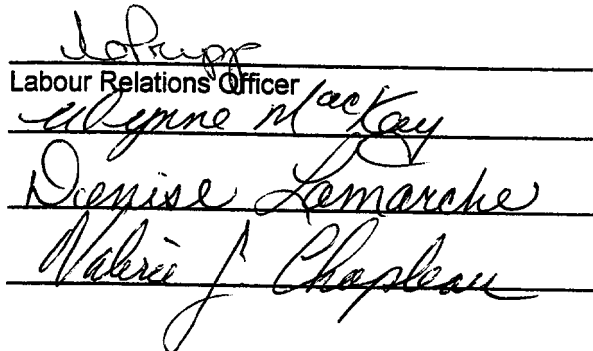 Labour Relations Officer
Wynne MacKay
Denise Lamarche
Valerie J Chapleau